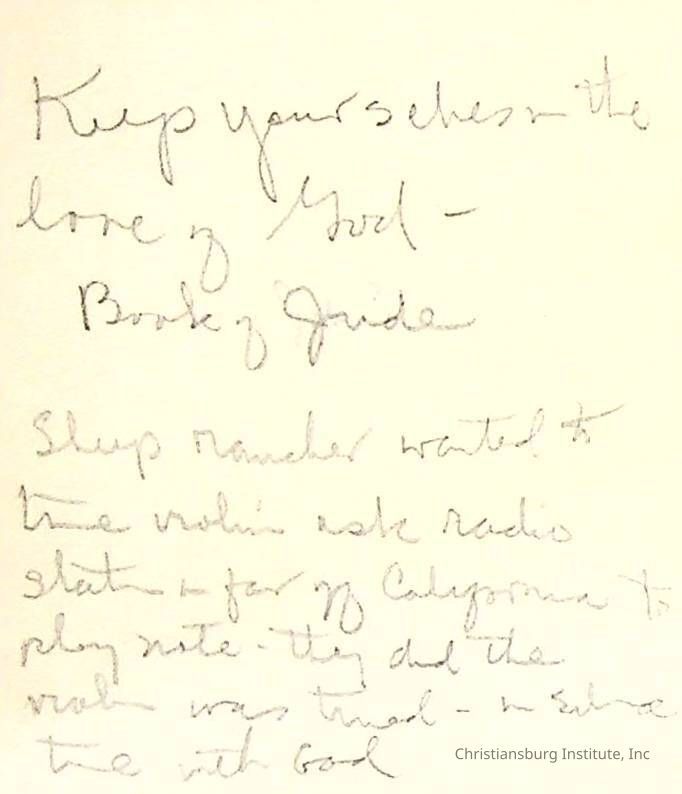 Keep yourselves in the
love of God -
Book of Jude
Sheep rancher wanted to
tune violin ask radio
station in far off California to
play note - they did the
violin was tuned - in silence
tune with God
Christiansburg Institute, Inc